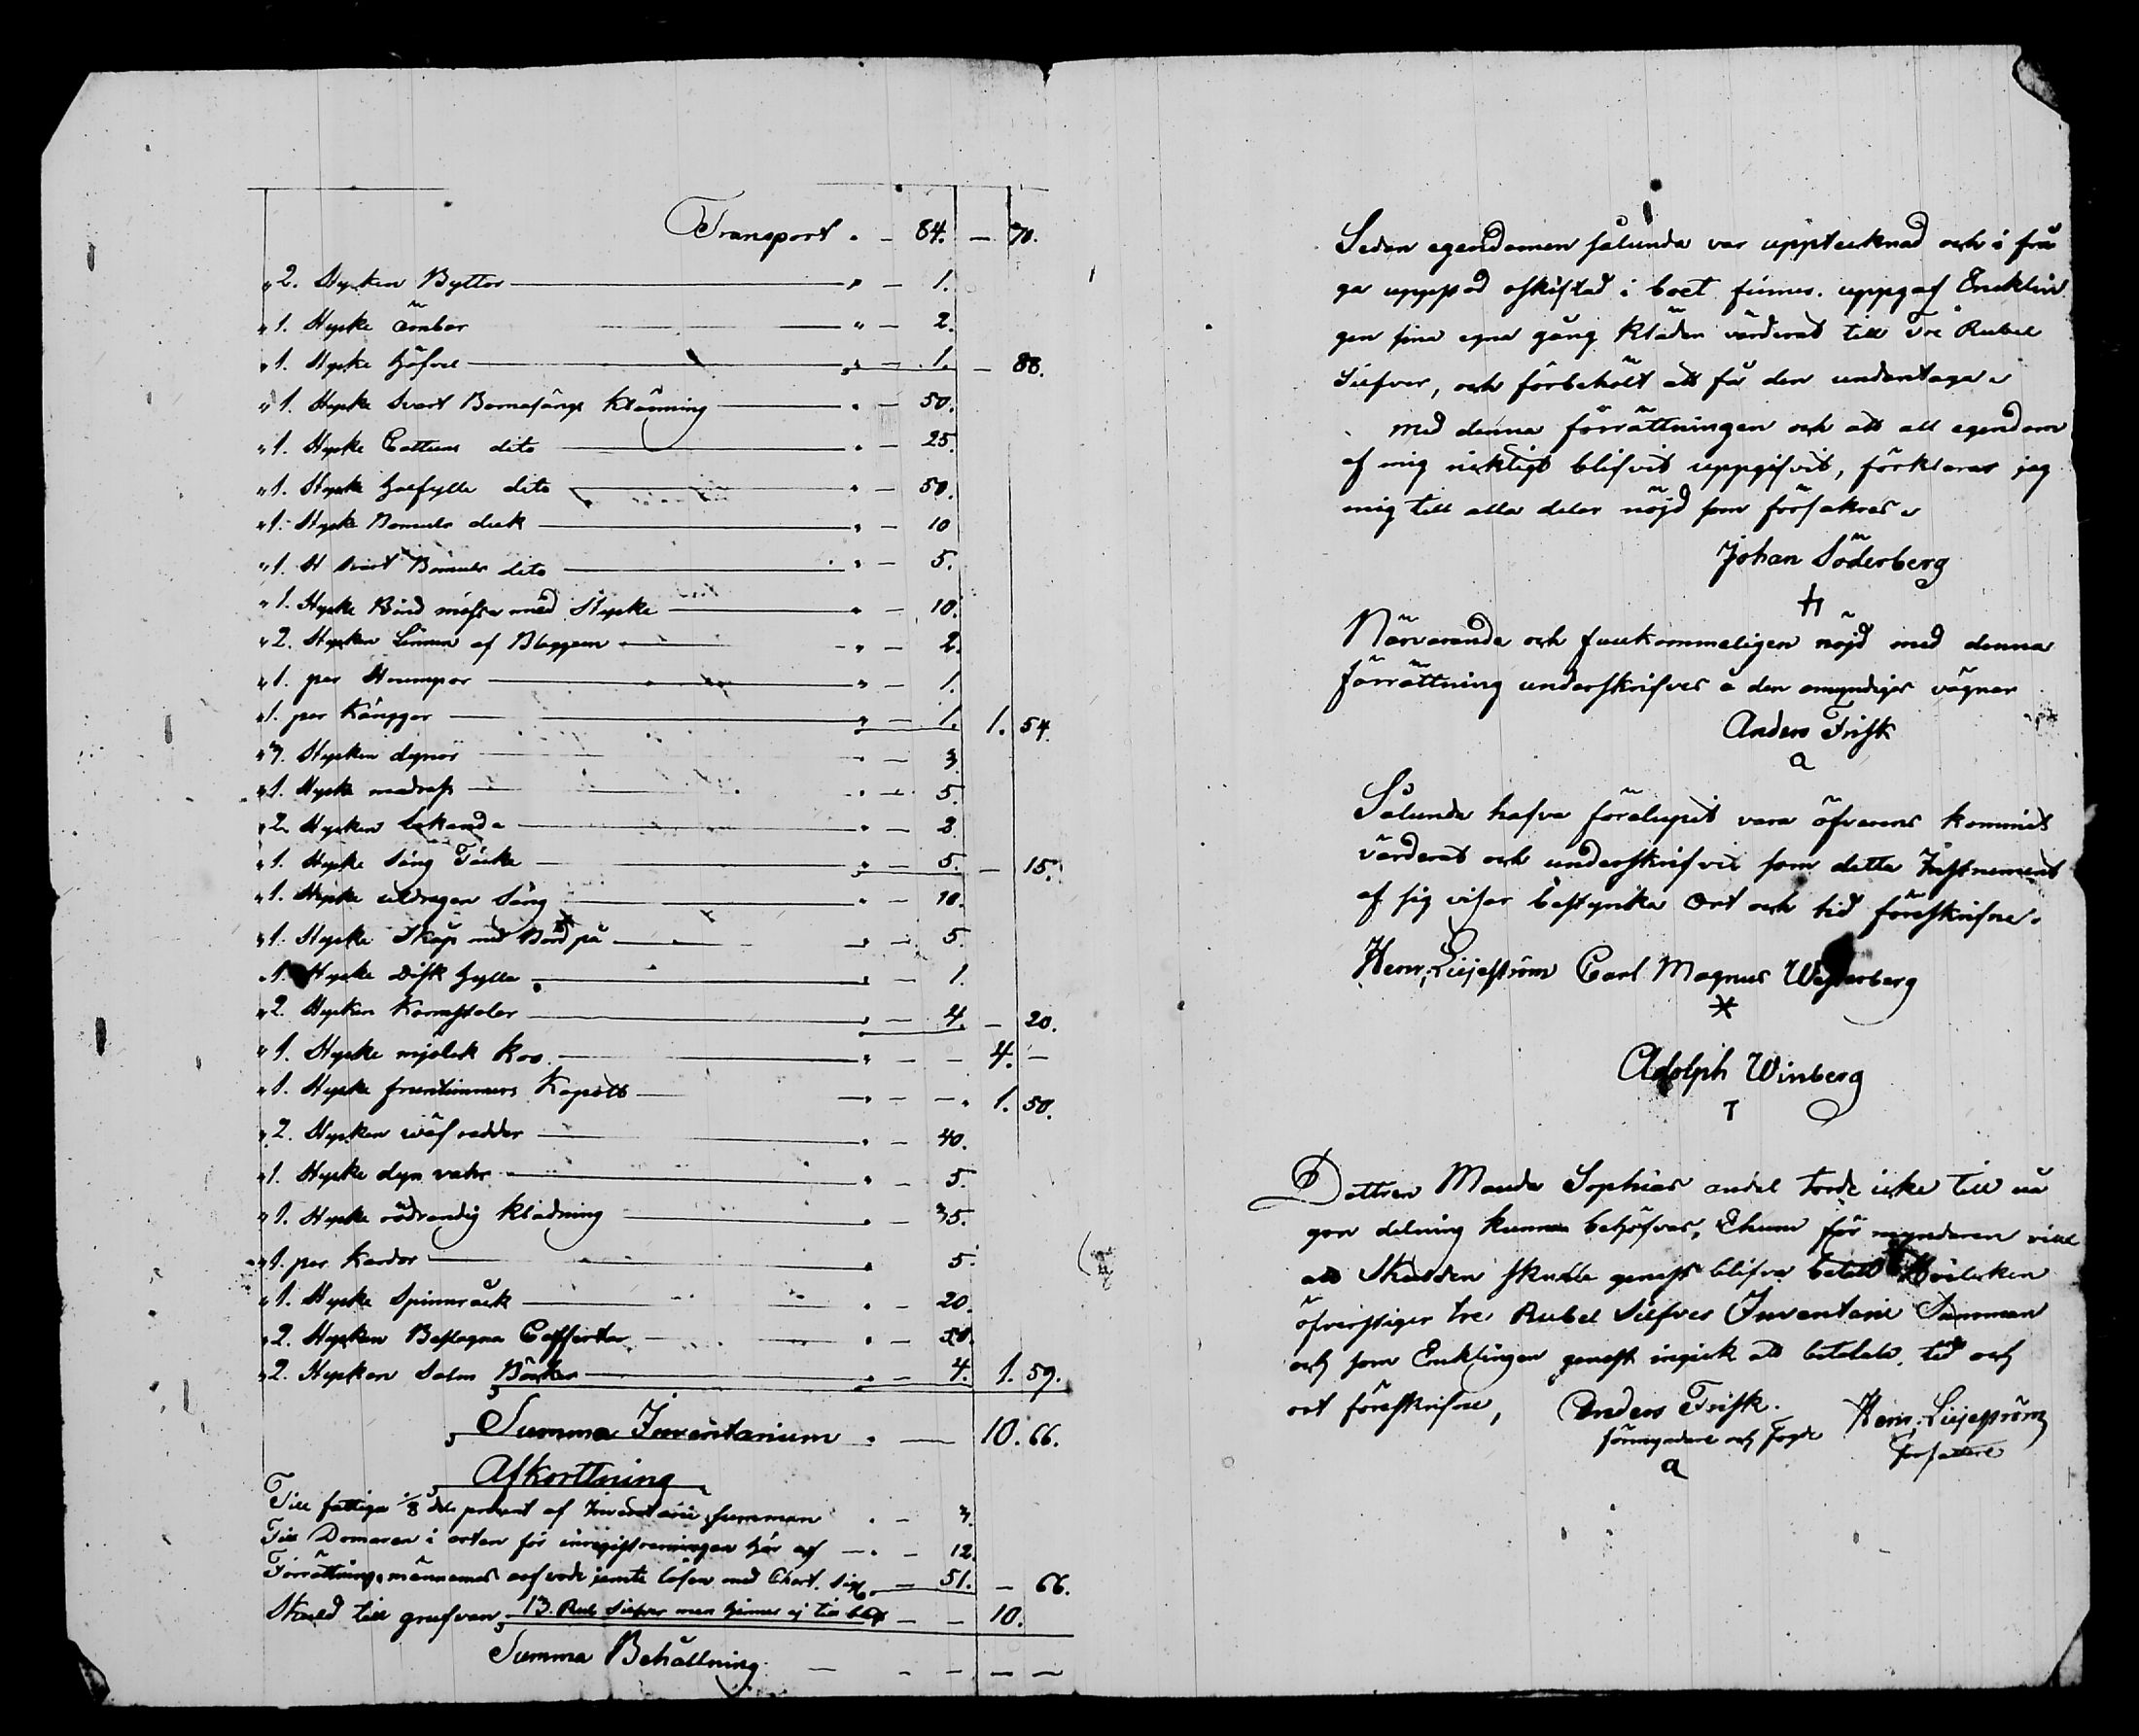 Transport „ — 84. — 70.
„ 2. Stycken Byttor „ — 1.
„ 1. Stycke ämbar „ — 2.
„ 1. Stycke „ — 1. — 88.
„ 1. Stycke Svart Klänning „ — 50.
„ 1. Stycke Cattuns dito „ — 25.
„ 1. Stycke Halfylle dito „ — 50.
„ 1. Stycke Bomuls duk „ — 10
„ 1. St svart Bomuls dito „ — 5.
„ 1. Stycke Bind mössa med Stycke „ — 10.
„ 2. Stycken Linnen af Blaggarn „ — 2.
„ 1. par Strumpor „ — 1.
„ 1. par Kängor „ — 1. 1. 54.
„ 3. Stycken dynor „ — 3
„ 1. Stycke madrass „ — 5.
„ 2. Stycken Lakanda „ — 2
„ 1. Stycke Säng Täcke „ — 5. — 15.
„ 1. Stycke utdragen Säng „ — 10.
„ 1. Stycke Skåp med Bord på „ — 5.
„ 1. Stycke Disk Hylla „ — 1.
„ 2. Stycken Karmstolar „ — 4. — 20.
„ 1. Stycke mjölck Koo „ — — 4. —
„ 1. Stycke fruntimmers Kapott „ — — „ 1. 50.
„ 2. Stycken wäf „ — 40.
„ 1. Stycke dyn vahr „ — 5.
„ 1. Stycke rödrandig Klädning „ — 35.
„ 1. par Kardor „ 5.
„ 1. Stycke Spinnråck „ — 20.
„ 2. Stycken Beslagna Coffertar „ — 50.
„ 2. Stycken „ — 4. 1. 59.
Summa Inventarium „ — 10. 66.
Afkorttning
Till fattiga 1/8 dels procent af Inventarii summan „ — 3.
Till Domaren i orten för inregistreringen här af — „ — 12.
Förrättnings männernas arfvode jemte lösen med Chart. Sig. — 51. — 66.
Skuld till grufvan 13. Rub Silfver men hinner ej till — — 10.
Summa Behållning — — — — —
Sedan egendomen sålunda var upptecknad och i frå
ga oskiftad i boet finnes. uppgaf Encklin
gen sina egna gång kläder värderat till Tre Rubel
Silfver, och förbehölt att få den undantaga.
Med denna förrättningen och att all egendom
af mig riktigt blifvit uppgifvit, förklarar jag
mig till alla delar nöjd som försäkras.
Johan Söderberg
Närvarande och fullkommeligen nöjd med denna
förrättning underskrifves å den omyndiges vägnar
Anders Frisk
a
Sålunda hafva förelupit vara öfverens kommit
värderat och underskrifvit som detta Instrument
af sig visar bestyrka Ort och tid föreskrifne.
Henr. Liljeström Carl Magnus Westerberg
Adolph Winberg
T
Dottren Manda Sophias andel torde icke till nå
gon delning kunna behöfvas, Ehuru för myndaren vill
att Skulden skulle genast blifva betald Hvilcken
öfverstiger tre Rubel Silfver Inventarie Summan
och som Encklingen genast ingick att betala. tid och
ort föreskrifne, Anders Frisk. Henr. Liljeström
förmyndare och Fogde Författare
a